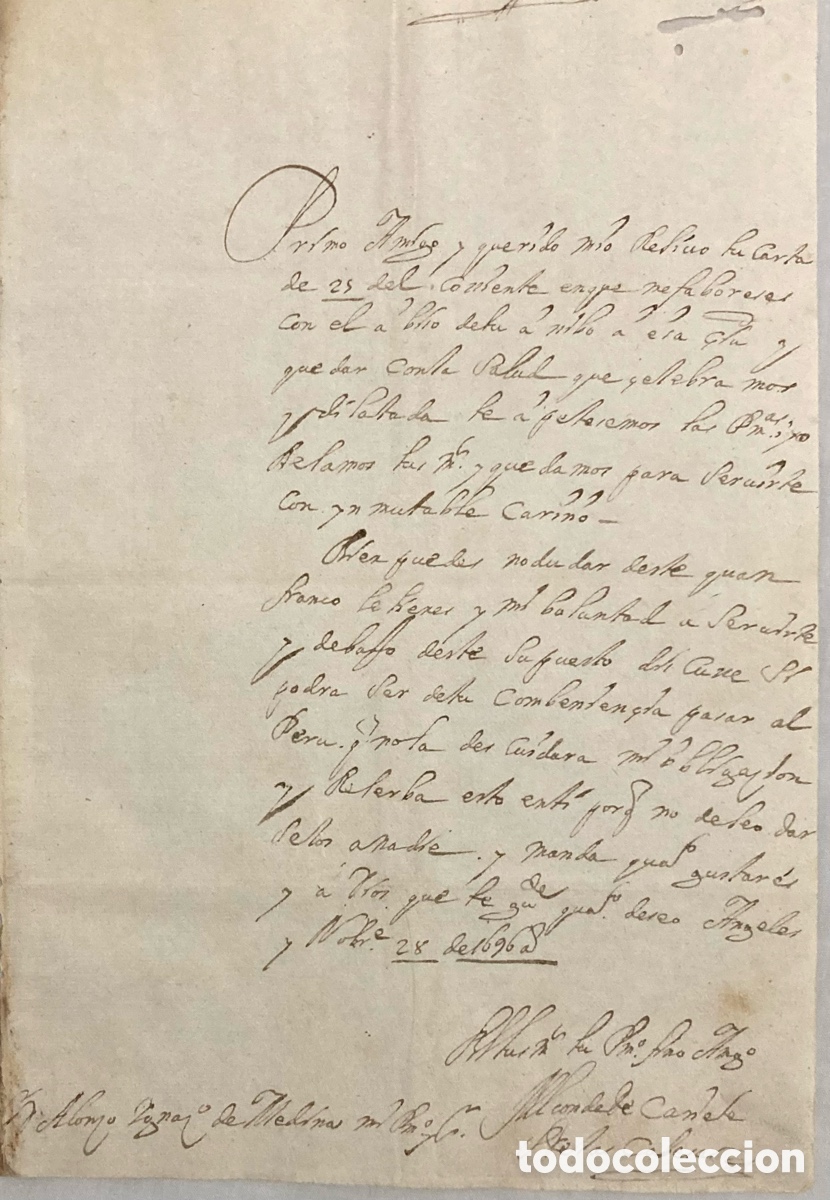 Primo Amigo y querido mio Resivo tu carta
de 25 del corriente enque mefaboreses
con el abiso detu a a esa y
quedar conla salud que çelebramos
y dilatada te apetesemos las Pm.as y yo
Besamos tus m.s y quedamos para Seruirte
con ynmutable cariño –
Bien puedes nodudar deste quan
franco letienes y mi boluntad a Seruirte
y debajo deste supuesto discurre si
podra ser detu combeniençia pasar al
Peru. q nosa descuidara mi obligaçion
y Reserba esto enti porq no deseo dar
selos anadie. y manda quato gustares
y a Dios que te gde quato. deseo Angeles
y Nobre. 28 de 1696 a
BLtus ms tu Pmo. fino Amgo
El conde de Cañete
Dn Alonso Ygnaçº de Medina mi Pmo y Sr.
todocoleccion